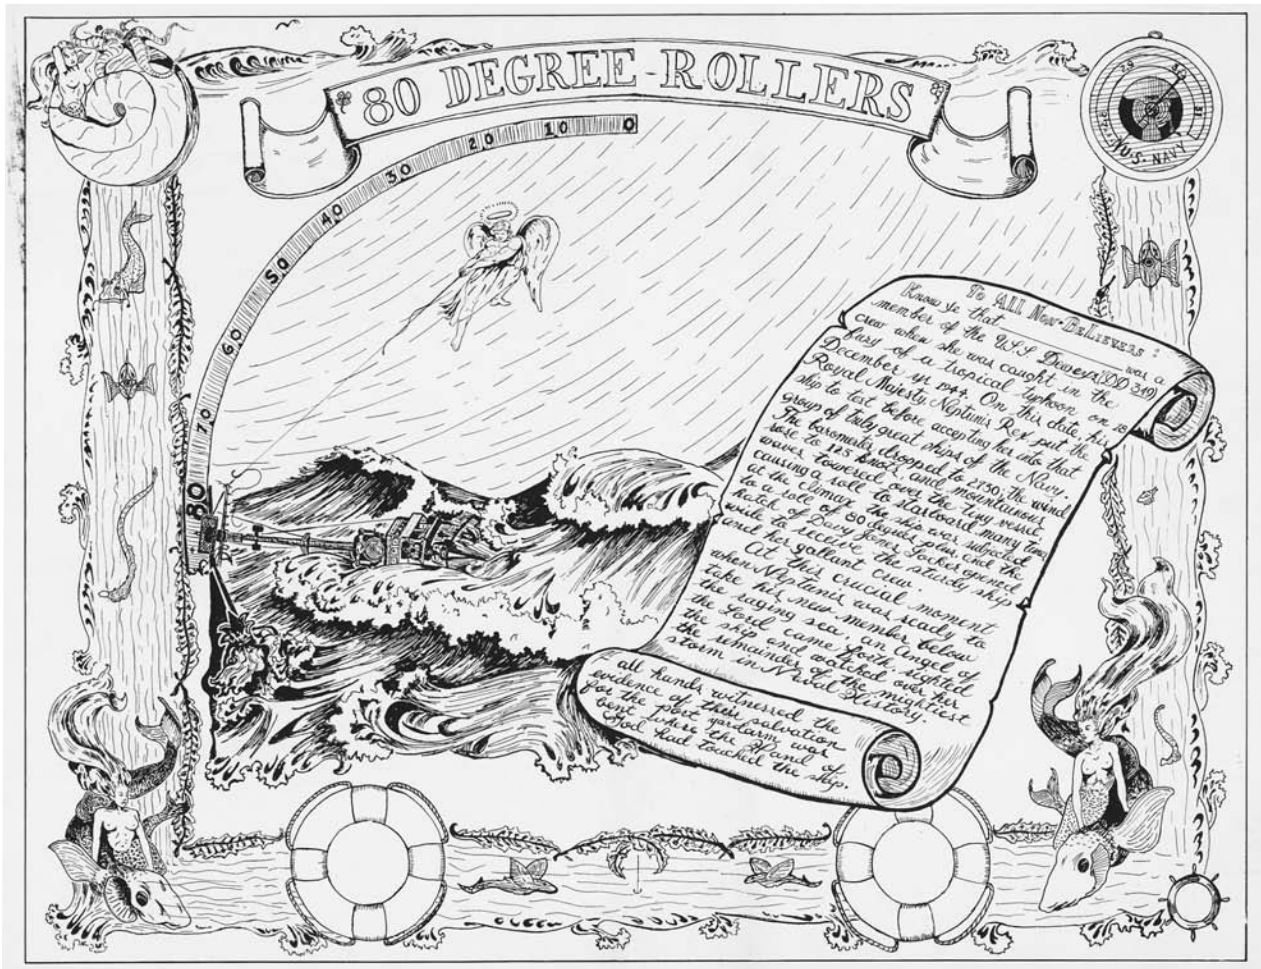 80 DEGREE-ROLLERS
0
10
20
30
40
50
60
70
80
29
30
31
U.S. NAVY
To All Non-Believers:
Know ye that ______ was a
member of the U.S.S Dewey's (DD 349)
crew when she was caught in the
fury of a tropical typhoon on 18
December in 1944. On this date, his
Royal Majesty Neptunis Rex put the
ship to test before accepting her into that
group of truly great ships of the Navy.
The barometer dropped to 27.50, the wind
rose to 125 knots, and mountainous
waves towered over the tiny vessel
causing a roll to starboard many times
at the climax the ship was subjected
to a roll of 80 degrees plus, and the
hatch of Davy Jones Locker opened
wide to receive the sturdy ship
and her gallant crew.
At this crucial moment
when Neptunis was ready to
take his new member below
the raging sea, an Angel of
the Lord came forth, righted
the ship and watched over her
the remainder of the mightiest
storm in Naval History.
all hands witnessed the
evidence of their salvation
for the port yardarm was
bent where the Hand of
God had touched the ship.